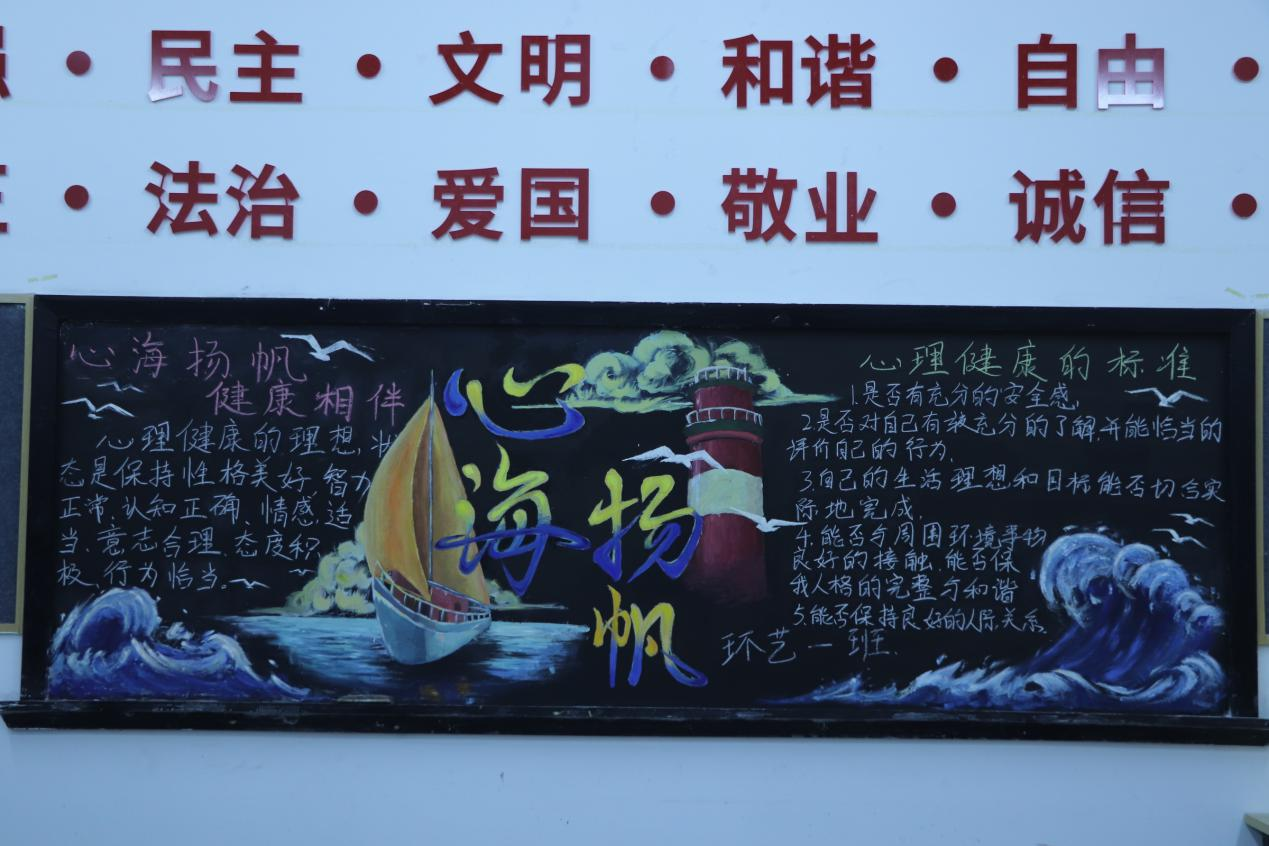 · 民主 · 文明 · 和谐 · 自由 ·
· 法治 · 爱国 · 敬业 · 诚信 ·
心海扬帆
健康相伴
心理健康的理想,状
态是保持性格美好、智力
正常、认知正确、情感,适
当、意志合理、态度积
极、行为恰当。
心
海
扬
帆
心理健康的标准
1.是否有充分的安全感,
2.是否对自己有较充分的了解,并能恰当的
评价自己的行为、
3.自己的生活理想和目标能否切合实
际地完成,
4.能否与周围环境事物
良好的接触,能否保
我人格的完整与和谐
5.能否保持良好的人际关系,
环艺一班